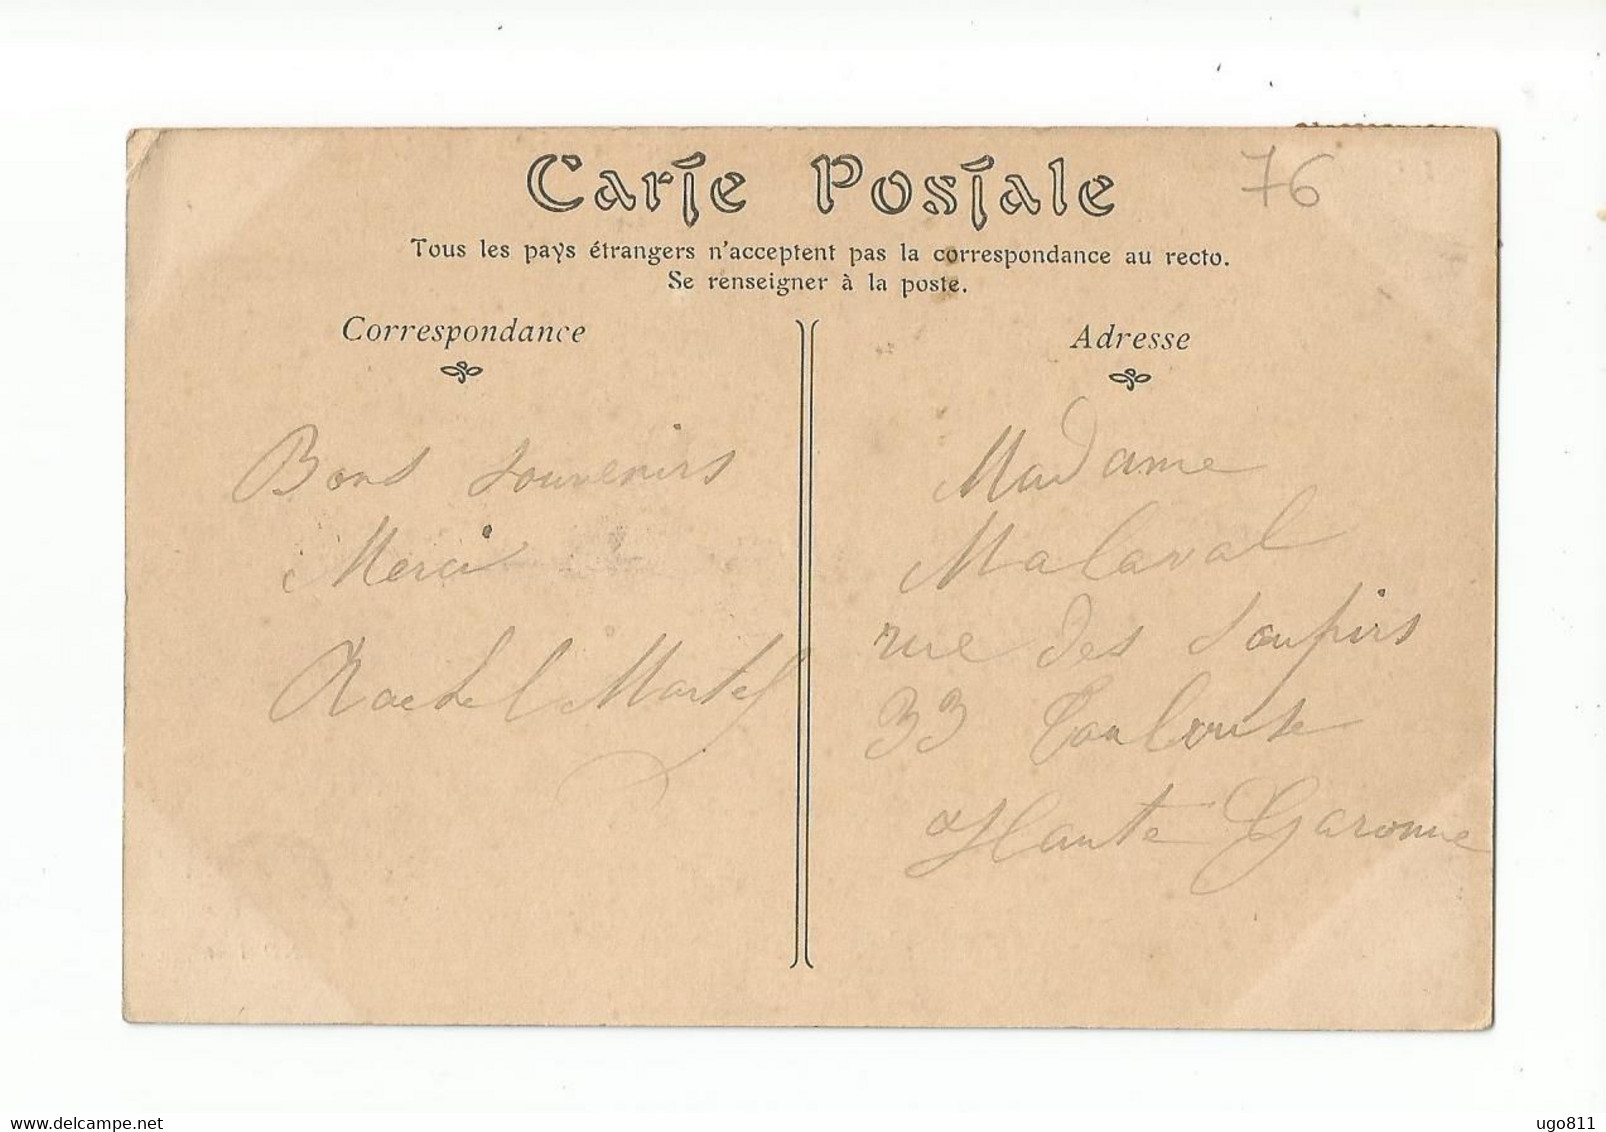 Carte Postale
76
Tous les pays étrangers n'acceptent pas la correspondance au recto.
Se renseigner à la poste.
Correspondance
Bons souvenirs
Merci
Rachel Martel
Adresse
Madame
Malaval
rue des Soupirs
33 Toulouse
Haute Garonne
www.delcampe.net
ugo811